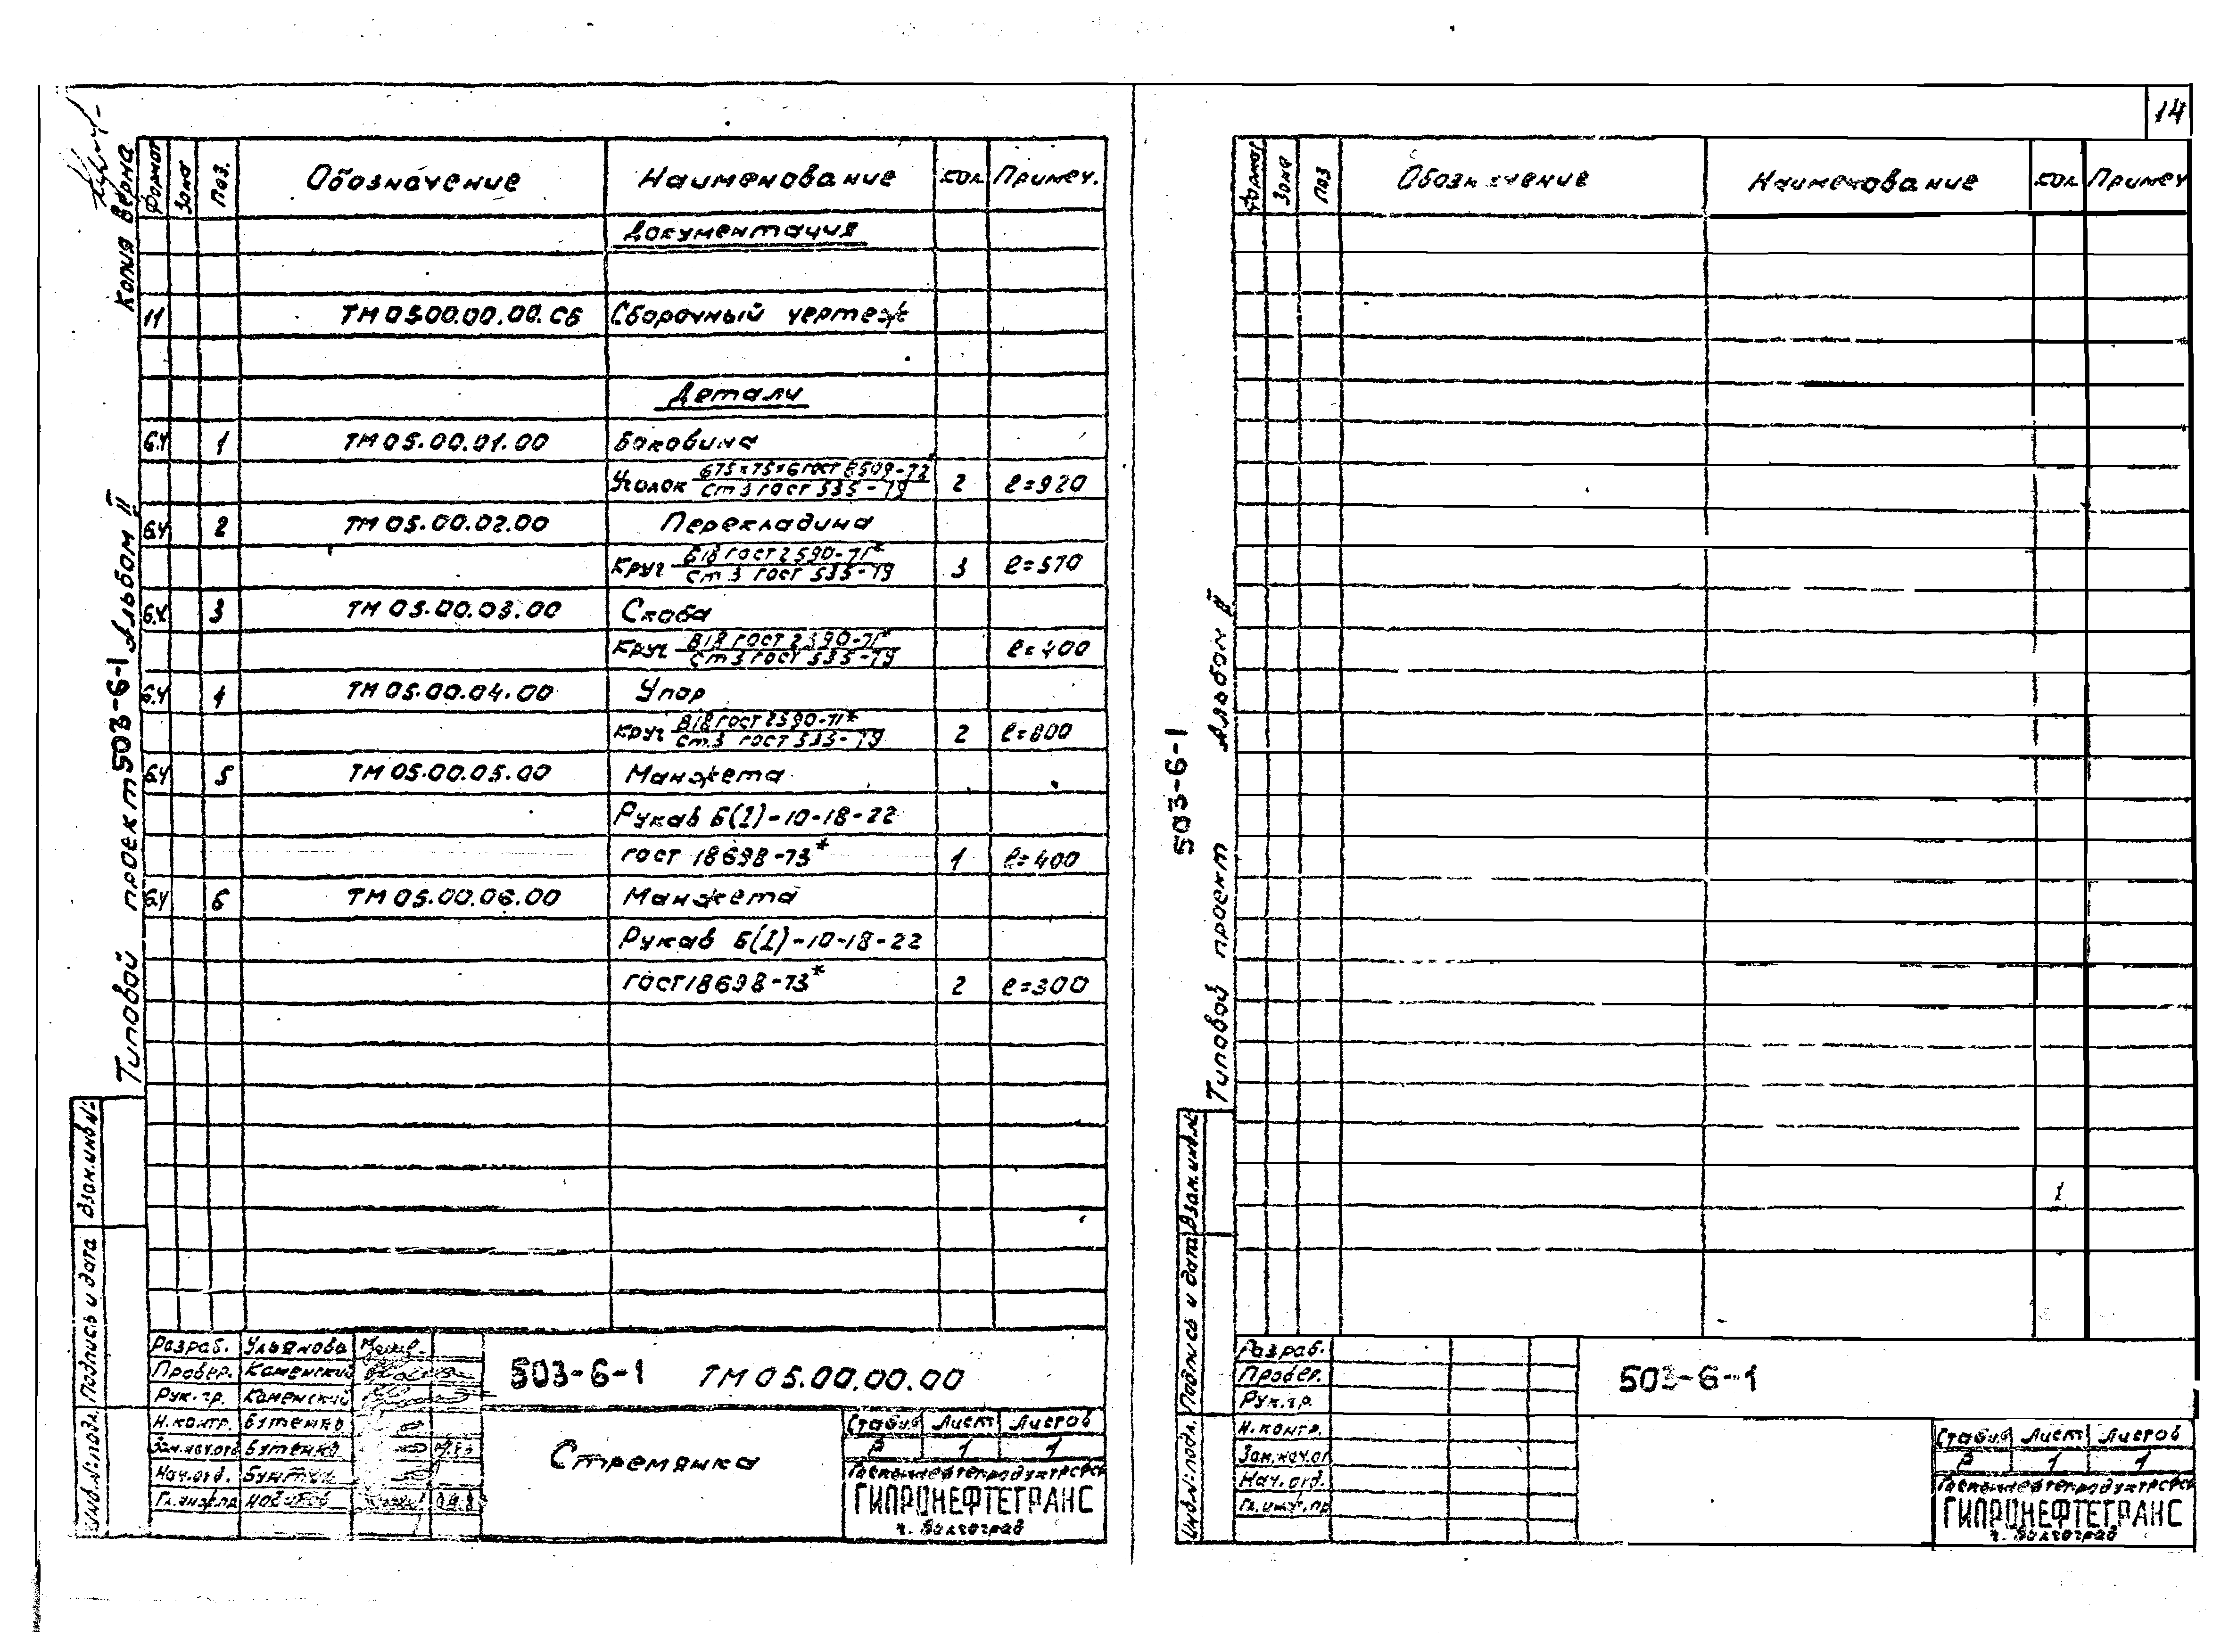 14
Копия верна
Типовой проект 503-6-1 Альбом II
Формат Зона Поз. Обозначение Наименование Кол Примеч.
Документация
11 ТМ 05.00.00.00.СБ Сборочный чертеж
Детали
Б.Ч 1 ТМ 05.00.01.00 Боковина
Уголок Б75×75×6 ГОСТ 8509-72 / Ст 3 ГОСТ 535-79 2 ℓ=920
Б.Ч 2 ТМ 05.00.02.00 Перекладина
Круг В18 ГОСТ 2590-71* / Ст 3 ГОСТ 535-79 3 ℓ=570
Б.Ч 3 ТМ 05.00.03.00 Скоба
Круг В18 ГОСТ 2590-71* / Ст 3 ГОСТ 535-79 ℓ=400
Б.Ч 4 ТМ 05.00.04.00 Упор
Круг В18 ГОСТ 2590-71* / Ст.3 ГОСТ 535-79 2 ℓ=800
Б.Ч 5 ТМ 05.00.05.00 Манжета
Рукав Б(I)-10-18-22
ГОСТ 18698-73* 1 ℓ=400
Б.Ч 6 ТМ 05.00.06.00 Манжета
Рукав Б(I)-10-18-22
ГОСТ 18698-73* 2 ℓ=300
Взам.инв.№
Подпись и дата
Инв.№ подл.
Разраб. Ульянова
Провер. Каменский
Рук.гр. Каменский
Н.контр. Бутенко
Зам.нач.отд Бутенко
Нач.отд.
Гл.инж.пр
503-6-1 ТМ 05.00.00.00
Стремянка
Стадия Лист Листов
Р 1 1
Госкомнефтепродукт РСФСР
ГИПРОНЕФТЕТРАНС
г. Волгоград
Типовой проект 503-6-1 Альбом II
Формат Зона Поз Обозначение Наименование Кол Примеч
1
Взам.инв.№
Подпись и дата
Инв.№ подл.
Разраб.
Провер.
Рук.гр.
Н.контр.
Зам.нач.от
Нач.отд.
Гл.инж.пр
503-6-1
Стадия Лист Листов
Р 1 1
Госкомнефтепродукт РСФСР
ГИПРОНЕФТЕТРАНС
г. Волгоград